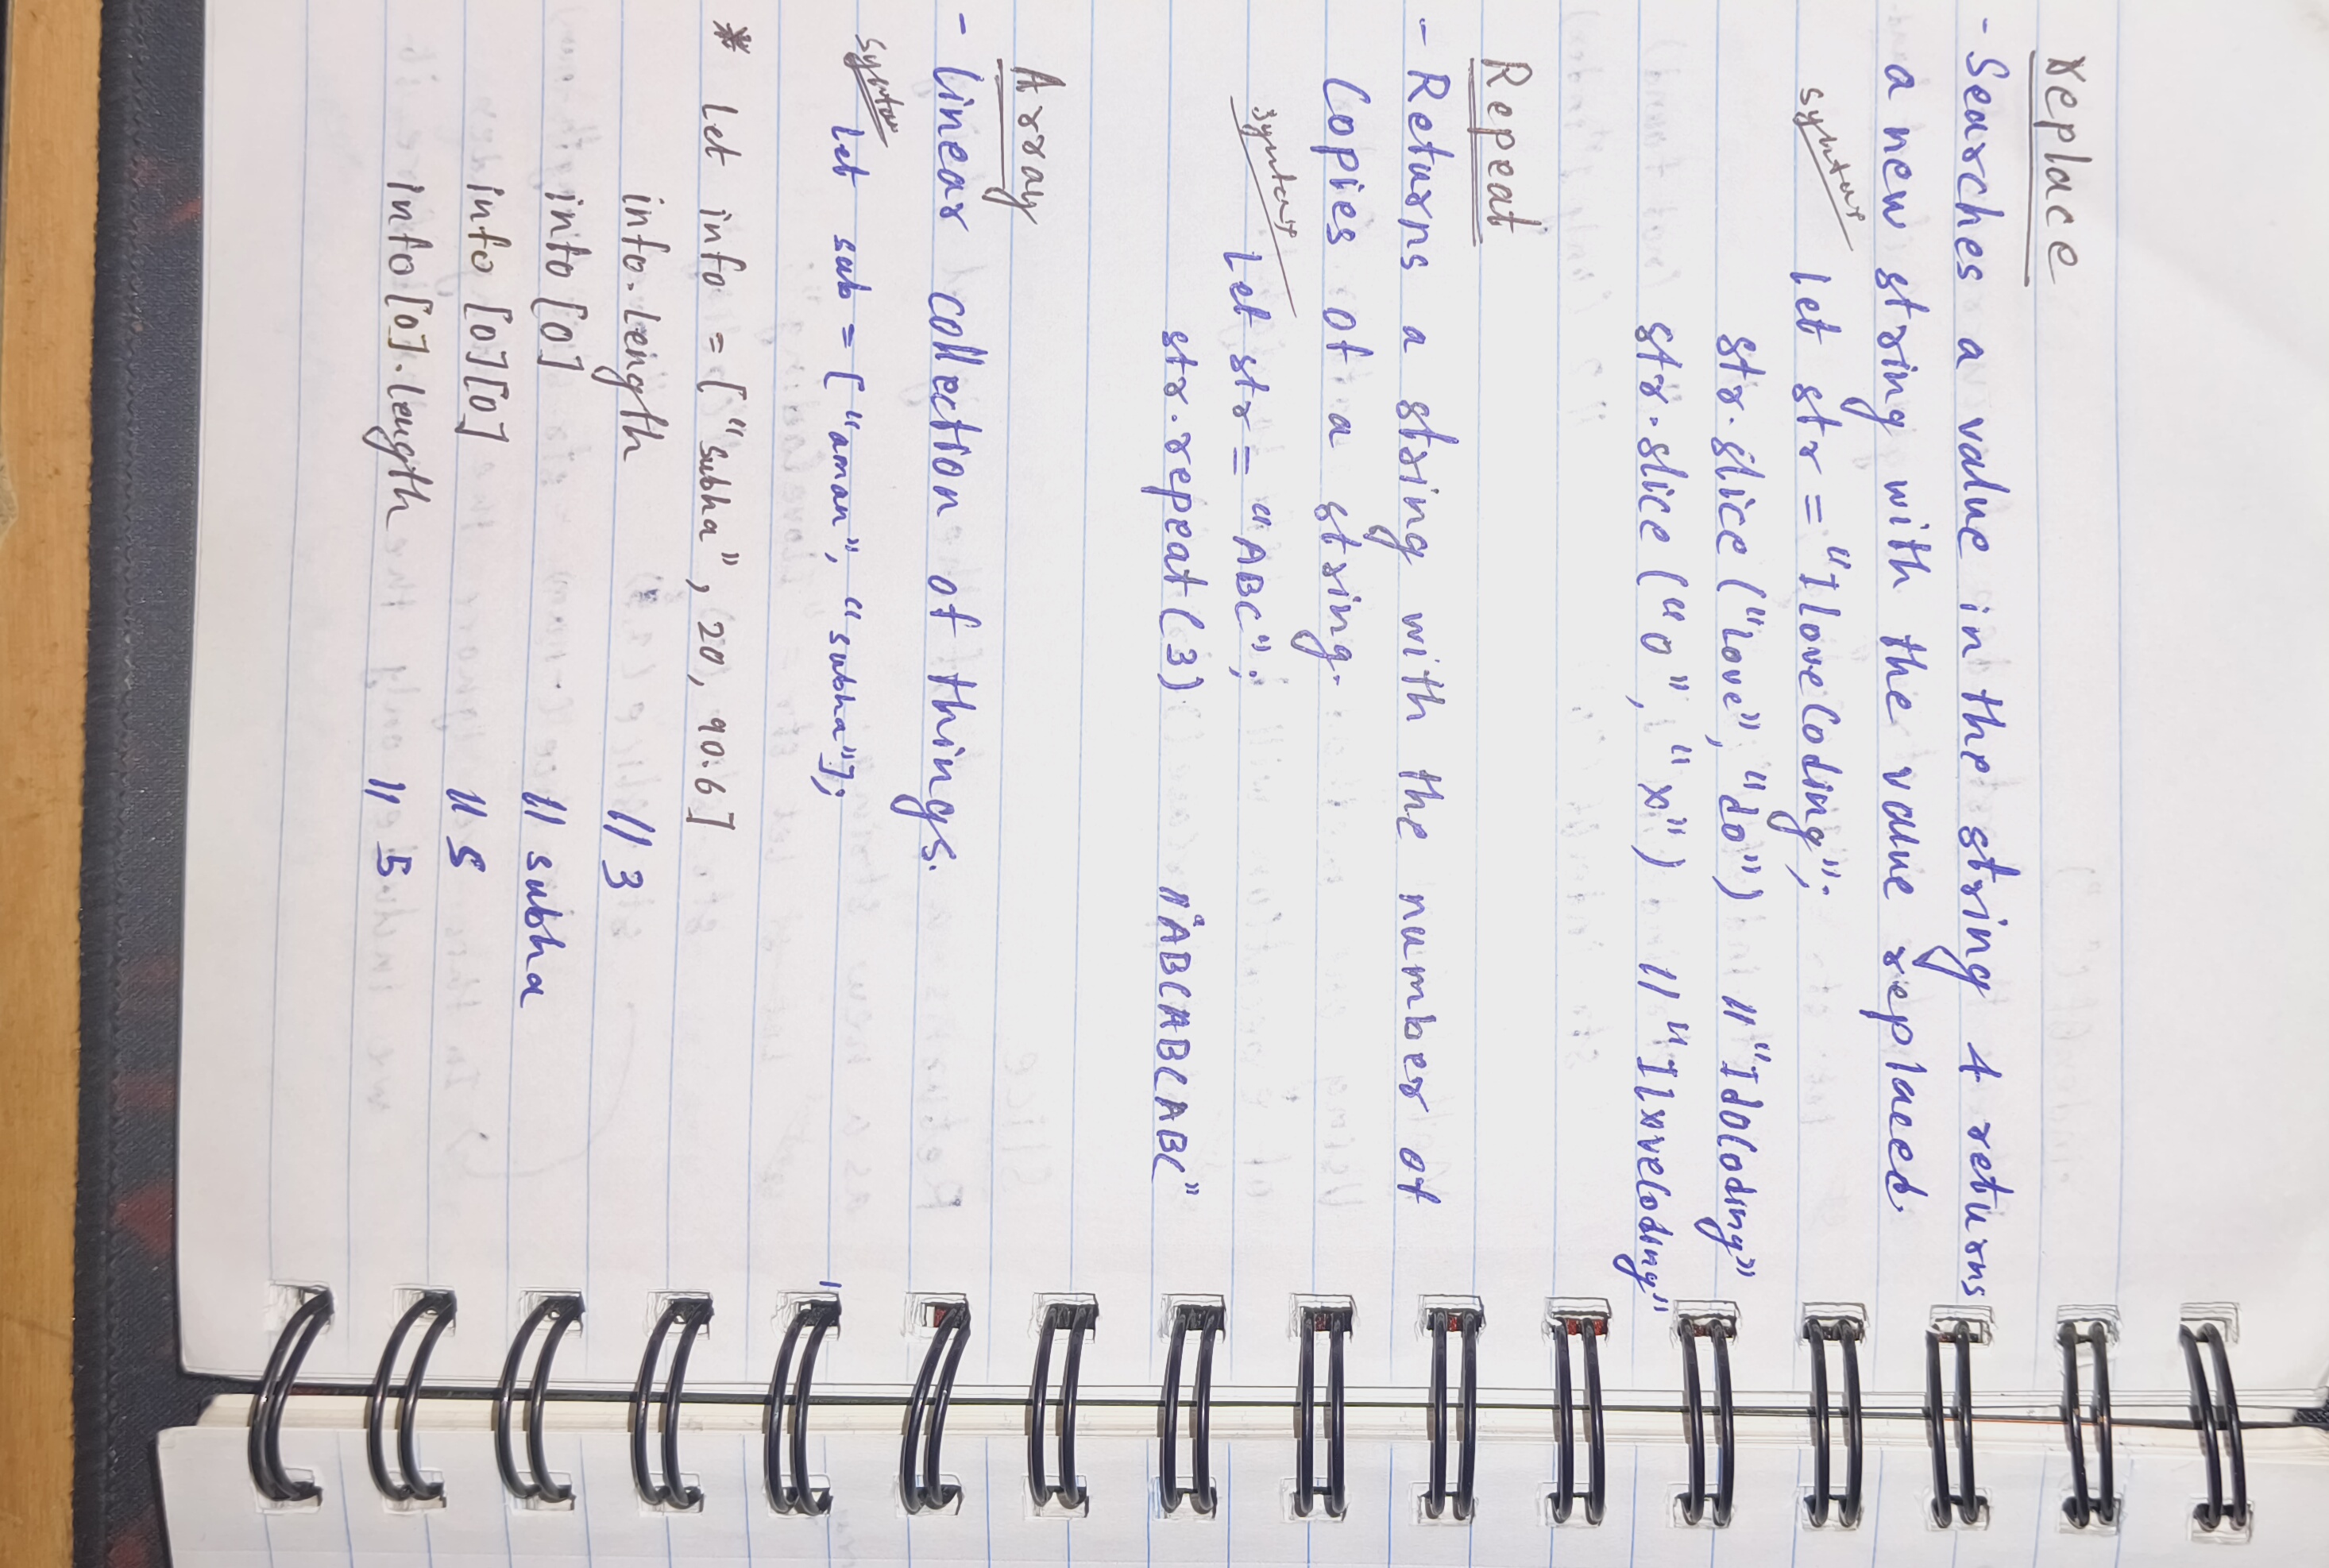 replace
- Searches a value in the string & returns
a new string with the value replaced
Syntax
let str = "IloveCoding";
str.slice ("love", "do") // "IdoCoding"
str.slice ("o", "x") // "IlxveCoding"
Repeat
- Returns a string with the number of
Copies of a string.
Syntax
Let str = "ABC";
str.repeat(3) // "ABCABCABC"
Array
- linear collection of things.
Syntax
Let sub = ["aman", "subha"];
* Let info = ["subha", 20, 90.6]
info.length // 3
info [0] // subha
info [0][0] // s
info [0].length // 5